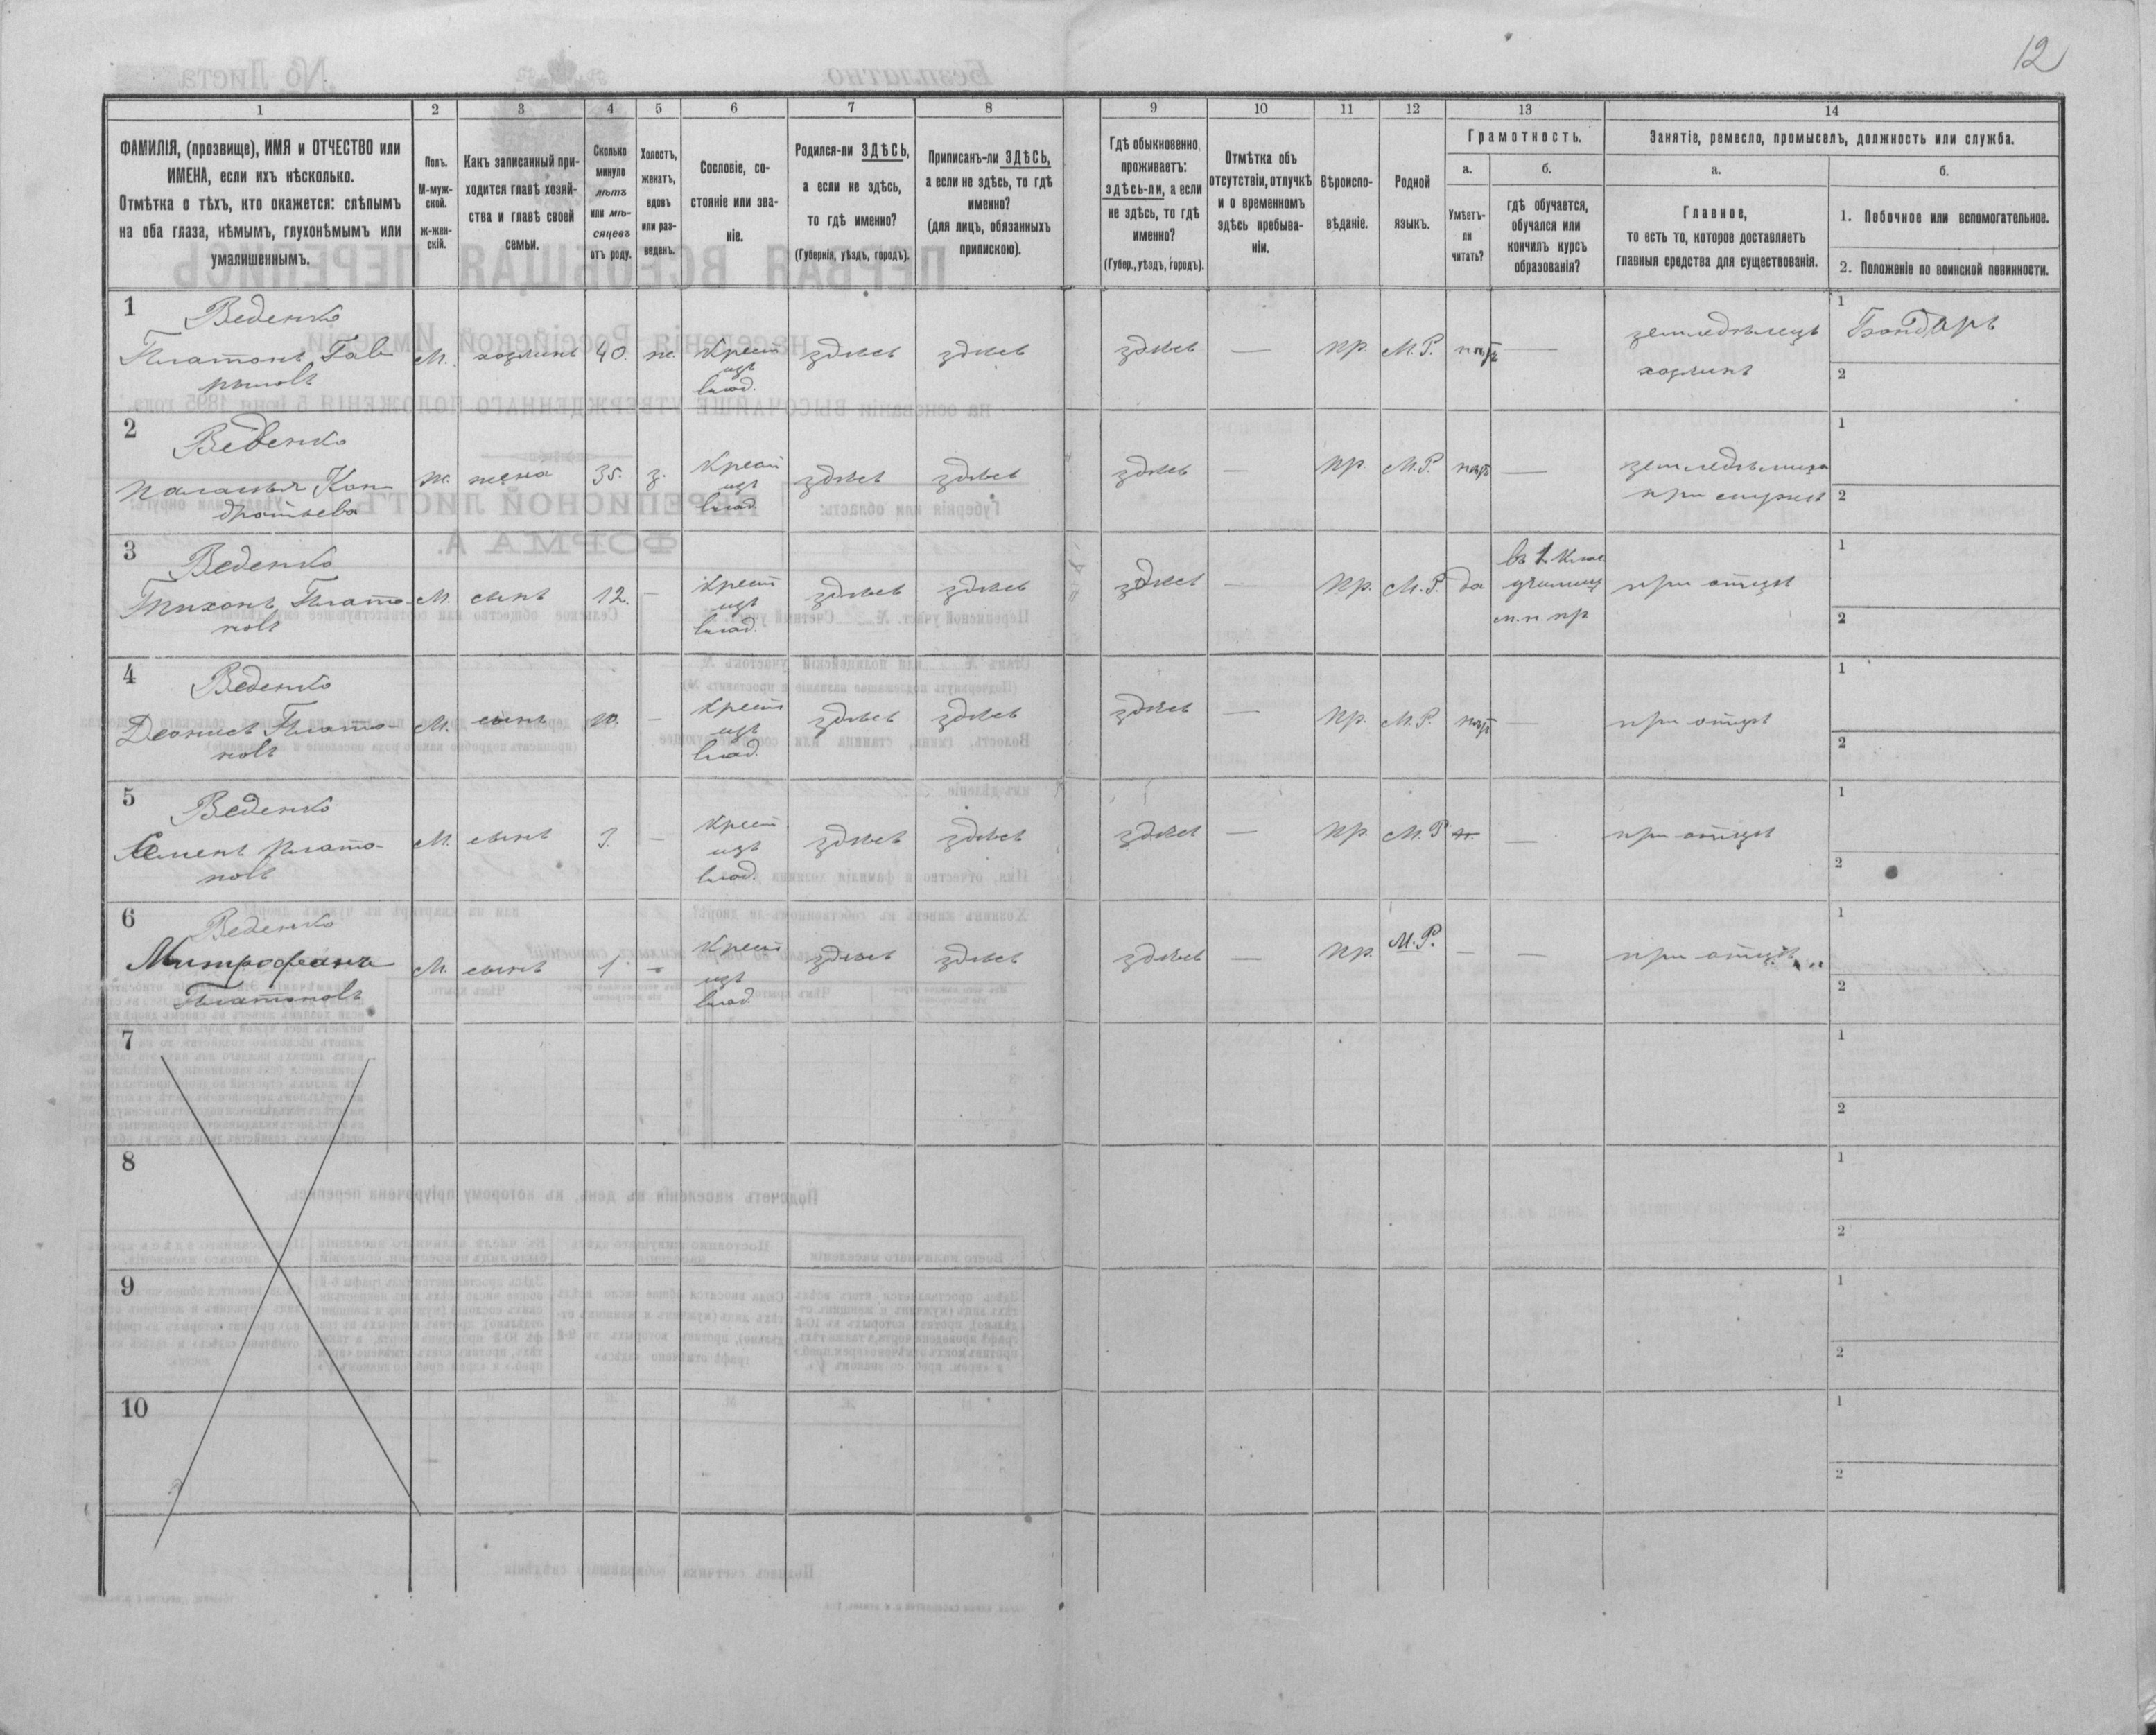 12
1 2 3 4 5 6 7 8 9 10 11 12 13 14
ФАМИЛІЯ, (прозвище), ИМЯ и ОТЧЕСТВО или
ИМЕНА, если ихъ нѣсколько.
Отмѣтка о тѣхъ, кто окажется: слѣпымъ
на оба глаза, нѣмымъ, глухонѣмымъ или
умалишеннымъ.
Полъ.
М-муж-
ской.
ж-жен-
скій.
Какъ записанный при-
ходится главѣ хозяй-
ства и главѣ своей
семьи.
Сколько
минуло
лѣтъ
или мѣ-
сяцевъ
отъ роду.
Холостъ,
женатъ,
вдовъ
или раз-
веденъ.
Сословіе, со-
стояніе или зва-
ніе.
Родился-ли ЗДѢСЬ,
а если не здѣсь,
то гдѣ именно?
(Губернія, уѣздъ, городъ).
Приписанъ-ли ЗДѢСЬ,
а если не здѣсь, то гдѣ
именно?
(для лицъ, обязанныхъ
припискою).
Гдѣ обыкновенно
проживаетъ:
здѣсь-ли, а если
не здѣсь, то гдѣ
именно?
(Губер., уѣздъ, городъ).
Отмѣтка объ
отсутствіи, отлучкѣ
и о временномъ
здѣсь пребыва-
ніи.
Вѣроиспо-
вѣданіе.
Родной
языкъ.
Грамотность.
а.
Умѣетъ-
ли
читать?
б.
гдѣ обучается,
обучался или
кончилъ курсъ
образованія?
Занятіе, ремесло, промыселъ, должность или служба.
а.
Главное,
то есть то, которое доставляетъ
главныя средства для существованія.
б.
1. Побочное или вспомогательное.
2. Положеніе по воинской повинности.
1 Веденко
Платонъ Гав-
риловъ
М. хозяинъ 40. ж. Крест
изъ
влад. здѣсь здѣсь здѣсь — пр. М.Р. нѣтъ — земледѣлецъ
хозяинъ
1 Бондарь
2
2 Веденко
Паланья Кон-
дратьева
ж. жена 35. з. Крест
изъ
влад. здѣсь здѣсь здѣсь — пр. М.Р. нѣтъ —
при мужѣ
1
2
3 Веденко
Тихонъ Плато-
новъ
М. сынъ 12. — Крест
изъ
влад. здѣсь здѣсь здѣсь — пр. М.Р. да
въ 1 клас
училищ
м. н. пр.
при отцѣ
1
2
4 Веденко
Деонисъ Плато-
новъ
М. сынъ 10. — Крест
изъ
влад. здѣсь здѣсь здѣсь — пр. М.Р. нѣтъ — при отцѣ
1
2
5 Веденко
Семенъ Плато-
новъ
М. сынъ 3. — Крест
изъ
влад. здѣсь здѣсь здѣсь — пр. М.Р. — при отцѣ
1
2
6 Веденко
Митрофанъ
Платоновъ
М. сынъ 1. — Крест
изъ
влад. здѣсь здѣсь здѣсь — пр. М.Р. — — при отцѣ
1
2
7
1
2
8
1
2
9
1
2
10
1
2